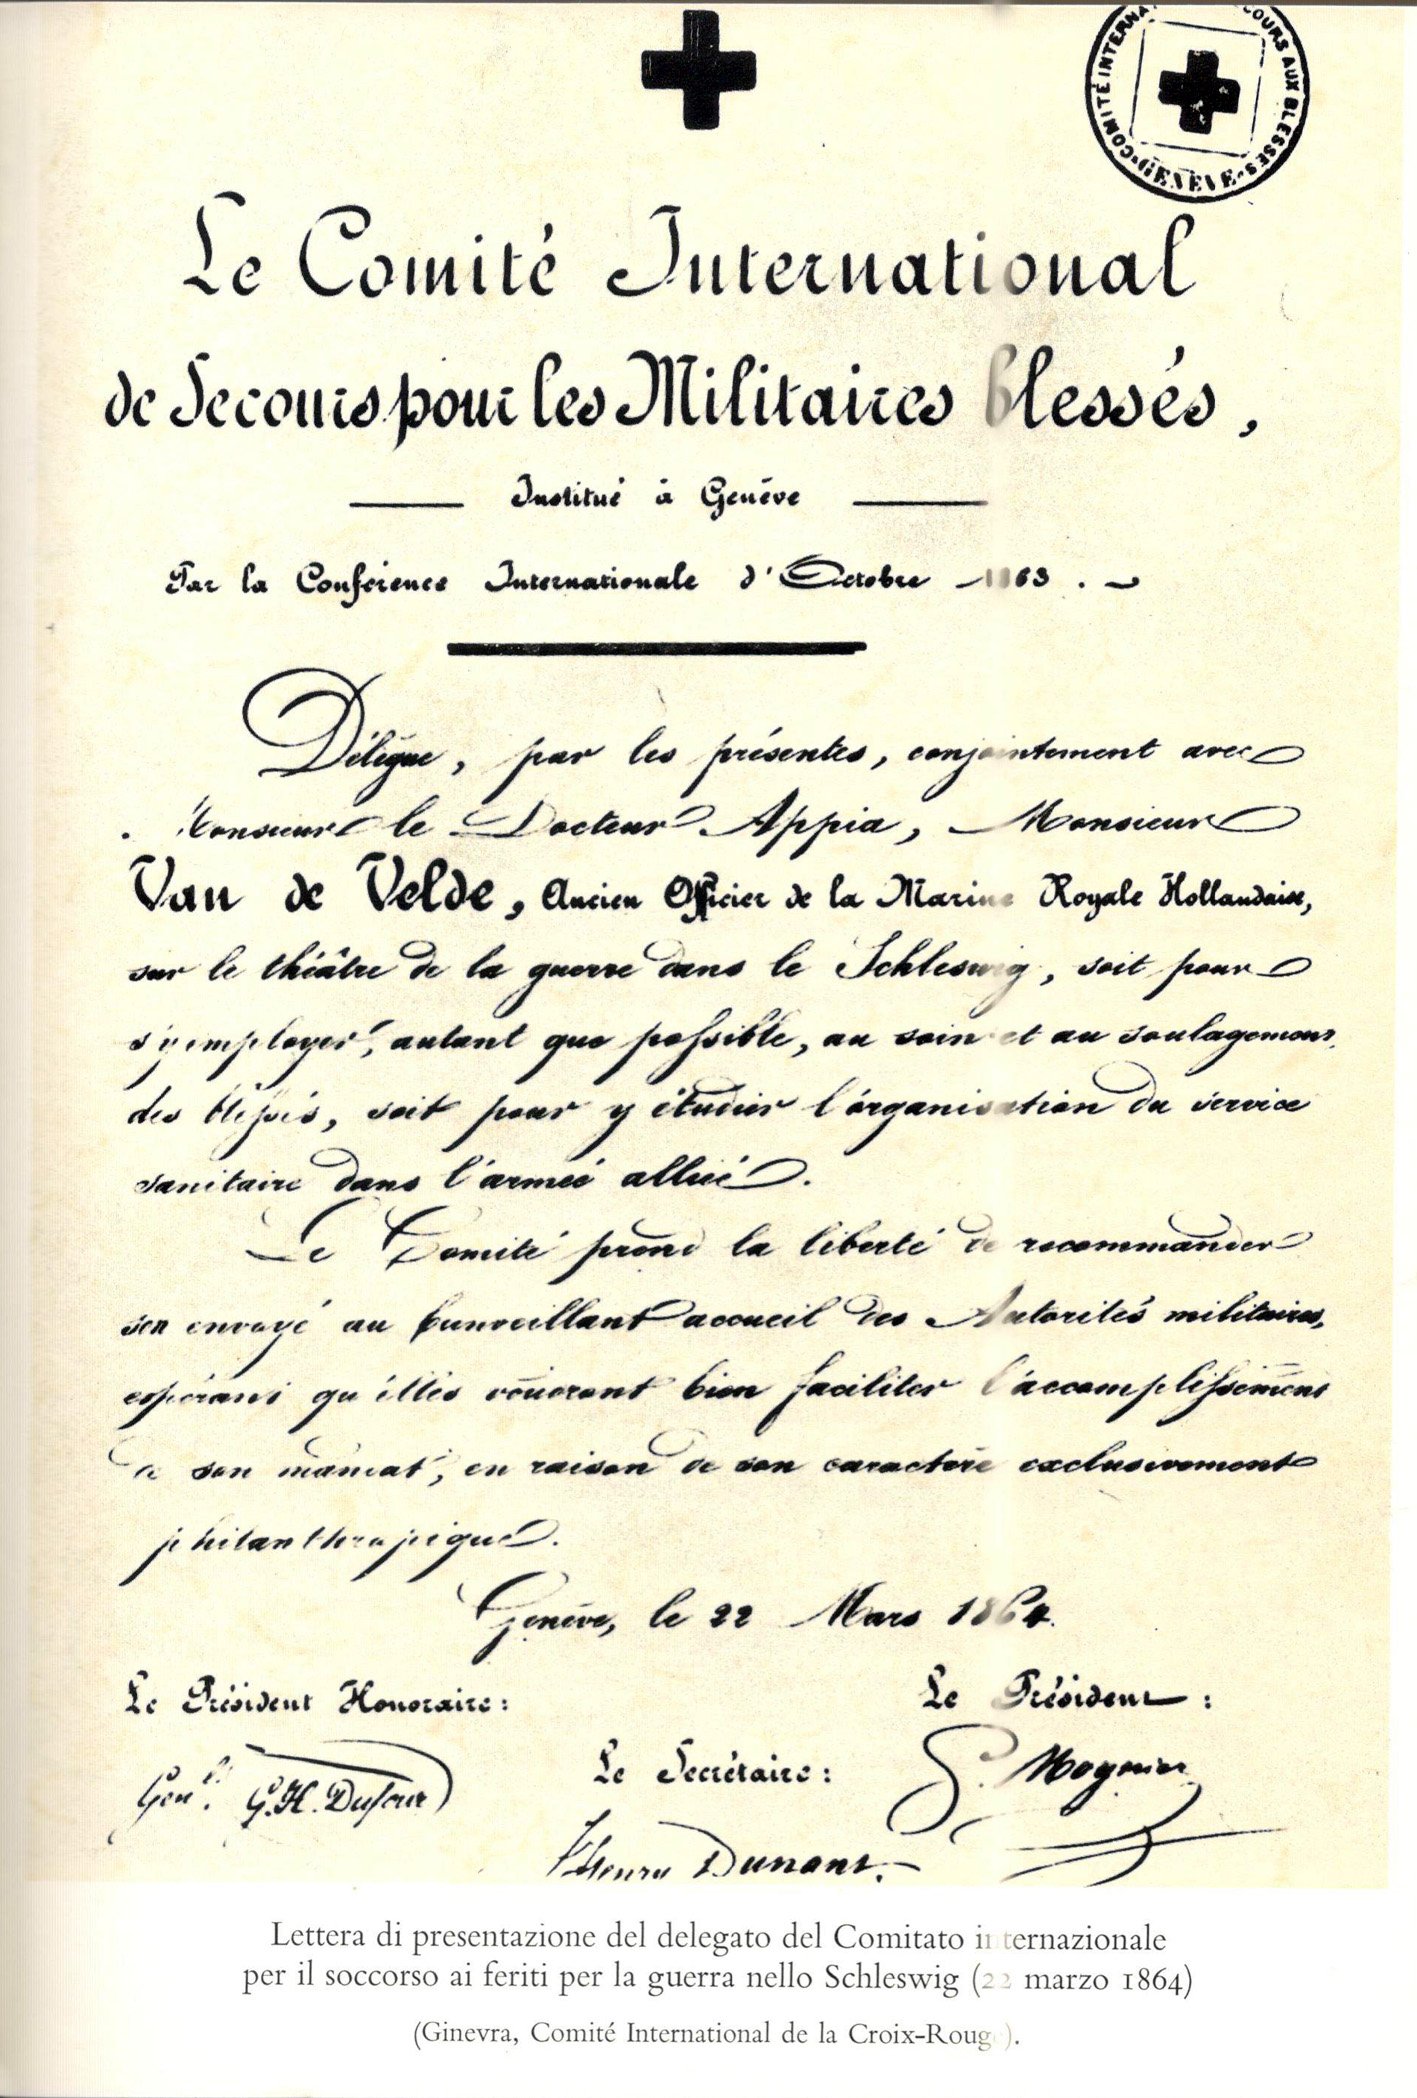 COMITÉ INTERNA COURS AUX BLESSÉS
GENÈVE
Le Comité International
de Secours pour les Militaires blessés,
Institué à Genève
Par la Conférence Internationale d'Octobre 1863.
Délègue, par les présentes, conjointement avec
Monsieur le Docteur Appia, Monsieur
Van de Velde, Ancien Officier de la Marine Royale Hollandaise,
sur le théâtre de la guerre dans le Schleswig, soit pour
s'y employer, autant que possible, au soin et au soulagement
des blessés, soit pour y étudier l'organisation du service
sanitaire dans l'armée alliée.
Le Comité prend la liberté de recommander
son envoyé au bienveillant accueil des Autorités militaires,
espérant qu'elles voudront bien faciliter l'accomplissement
de son mandat, en raison de son caractère exclusivement
philanthropique.
Genève, le 22 Mars 1864.
Le Président Honoraire:
Le Président:
Le Secrétaire:
Gén.l G. H. Dufour
G. Moynier
J Henry Dunant.
Lettera di presentazione del delegato del Comitato internazionale
per il soccorso ai feriti per la guerra nello Schleswig (22 marzo 1864)
(Ginevra, Comité International de la Croix-Rouge).